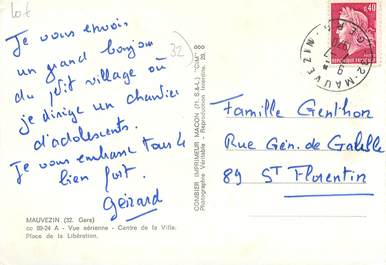 Lot
Je vous envoie
un grand bonjour
du petit village où
je dirige un chantier
d'adolescents.
Je vous embrasse tous 4
bien fort.
Gérard
32
MAUVEZIN (32. Gers)
cc 89-24 A - Vue aérienne - Centre de la Ville.
Place de la Libération.
COMBIER IMPRIMEUR MACON (71. S.-&-L.) "CIM"
Photographie Véritable - Reproduction Interdite.
0,40
REPUBLIQUE FRANCAISE
32 - MAUVEZIN
GERS
Famille Genthon
Rue Gén. de Gaulle
89 ST Florentin